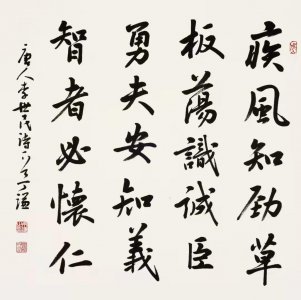 疾風知勁草
板蕩識誠臣
勇夫安知義
智者必懷仁
唐人李世民诗一首丁謐